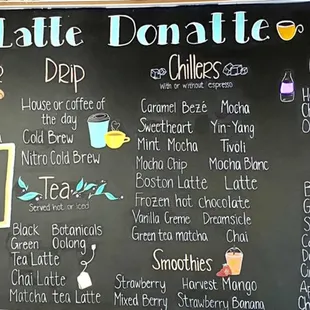 Latte Donatte
Drip
House or coffee of
the day
Cold Brew
Nitro Cold Brew
Tea
Served hot or iced
Black Botanicals
Green Oolong
Tea Latte
Chai Latte
Matcha tea Latte
Chillers
With or without espresso
Caramel Bezé Mocha
Sweetheart Yin-Yang
Mint Mocha Tivoli
Mocha Chip Mocha Blanc
Boston Latte Latte
Frozen hot chocolate
Vanilla Creme Dreamsicle
Green tea matcha Chai
Smoothies
Strawberry Harvest Mango
Mixed Berry Strawberry Banana